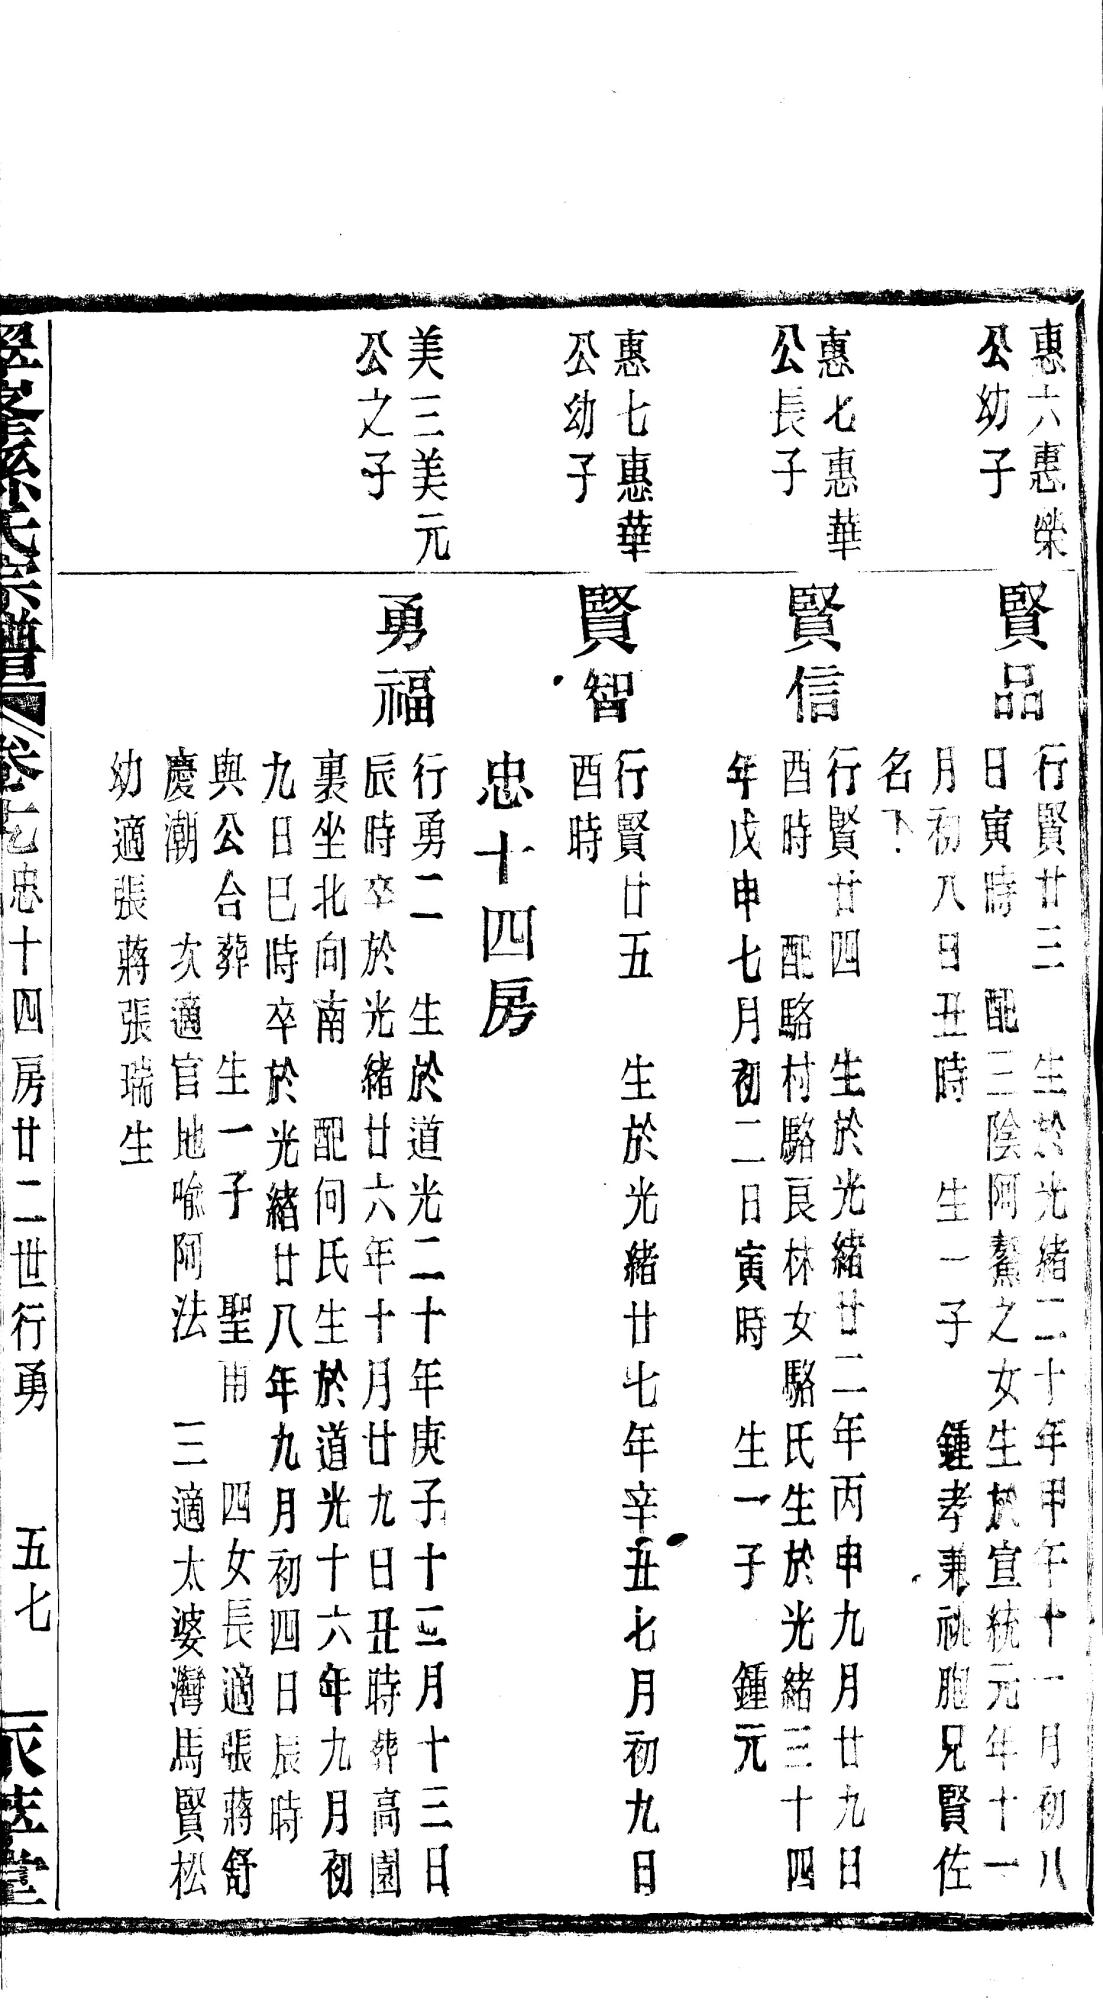 惠六惠榮
公幼子
賢品
行賢廿三　生於光緒二十年甲午十一月初八
日寅時　配三陰阿鰲之女生於宣統元年十一
月初八日丑時　生一子　鍾孝兼祧胞兄賢佐
名下
惠七惠華
公長子
賢信
行賢廿四　生於光緒廿二年丙申九月廿九日
酉時　配駱村駱良林女駱氏生於光緒三十四
年戊申七月初二日寅時　生一子　鍾元
惠七惠華
公幼子
賢智
行賢廿五　生於光緒廿七年辛丑七月初九日
酉時
忠十四房
美三美元
公之子
勇福
行勇二　生於道光二十年庚子十二月十三日
辰時卒於光緒廿六年十月廿九日丑時葬高園
裏坐北向南　配何氏生於道光十六年九月初
九日巳時卒於光緒廿八年九月初四日辰時
與公合葬　生一子　聖甫　四女長適張蔣舒
慶潮　次適官地喻阿法　三適太婆灣馬賢松
幼適張蔣張瑞生
孫氏宗譜　卷七忠十四房廿二世行勇　五七　堂